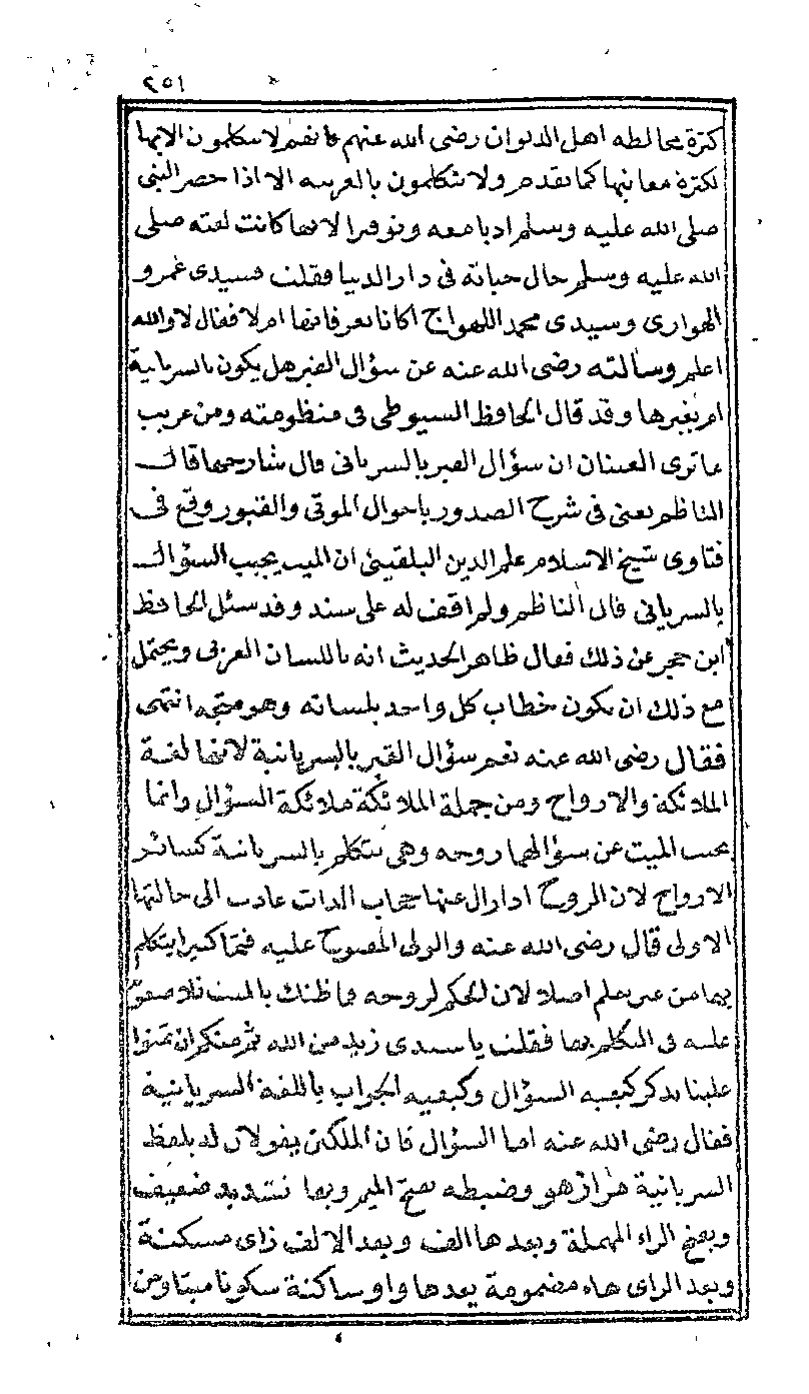 ٢٥١
كثرة مخالطه اهل الديوان رضى الله عنهم فانهم لا يتكلمون الا بها
لكثرة معانيها كما تقدم ولا يتكلمون بالعربيه الا اذا حضر النبى
صلى الله عليه وسلم ادبا معه وتوقيرا لانها كانت لغته صلى
الله عليه وسلم حال حياته فى دار الدنيا فقلت فسيدى عمرو
الهوارى وسيدى محمد اللهواج اكانا يعرفانها ام لا فقال لا والله
اعلم وسالته رضى الله عنه عن سؤال القبر هل يكون بالسريانية
ام بغيرها وقد قال الحافظ السيوطى فى منظومته ومن غريب
ما ترى العينان ان سؤال القبر بالسريانى قال شارحها قال
الناظم يعنى فى شرح الصدور باحوال الموتى والقبور وقع فى
فتاوى شيخ الاسلام علم الدين البلقينى ان الميت يجيب السؤال
بالسريانى قال الناظم ولم اقف له على سند وقد سئل الحافظ
ابن حجر عن ذلك فقال ظاهر الحديث انه باللسان العربى ويحتمل
مع ذلك ان يكون خطاب كل واحد بلسانه وهو متجه انتهى
فقال رضى الله عنه نعم سؤال القبر بالسريانية لانها لغة
الملائكة والارواح ومن جملة الملائكة ملائكة السؤال وانما
يجيب الميت عن سؤالهما روحه وهى تتكلم بالسريانية كسائر
الارواح لان الروح اذا زال عنها حجاب الذات عادت الى حالتها
الاولى قال رضى الله عنه والولى المفتوح عليه فتحا كبيرا يتكلم
بها من غير تعلم اصلا لان الحكم لروحه فما ظنك بالميت فلا صعوبة
عليه فى التكلم بها فقلت يا سيدى نريد من الله ثم منكم ان تمنوا
علينا بذكر كيفيه السؤال وكيفيه الجواب باللغة السريانية
فقال رضى الله عنه اما السؤال فان الملكين يقولان له بلفظ
السريانية مرازهو وضبطه بفتح الميم وبها تشديد ضعيف
وبفتح الراء المهملة وبعدها الف وبعد الالف زاى مسكنة
وبعد الزاى هاء مضمومة بعدها واو ساكنة سكونا ميتا ومن